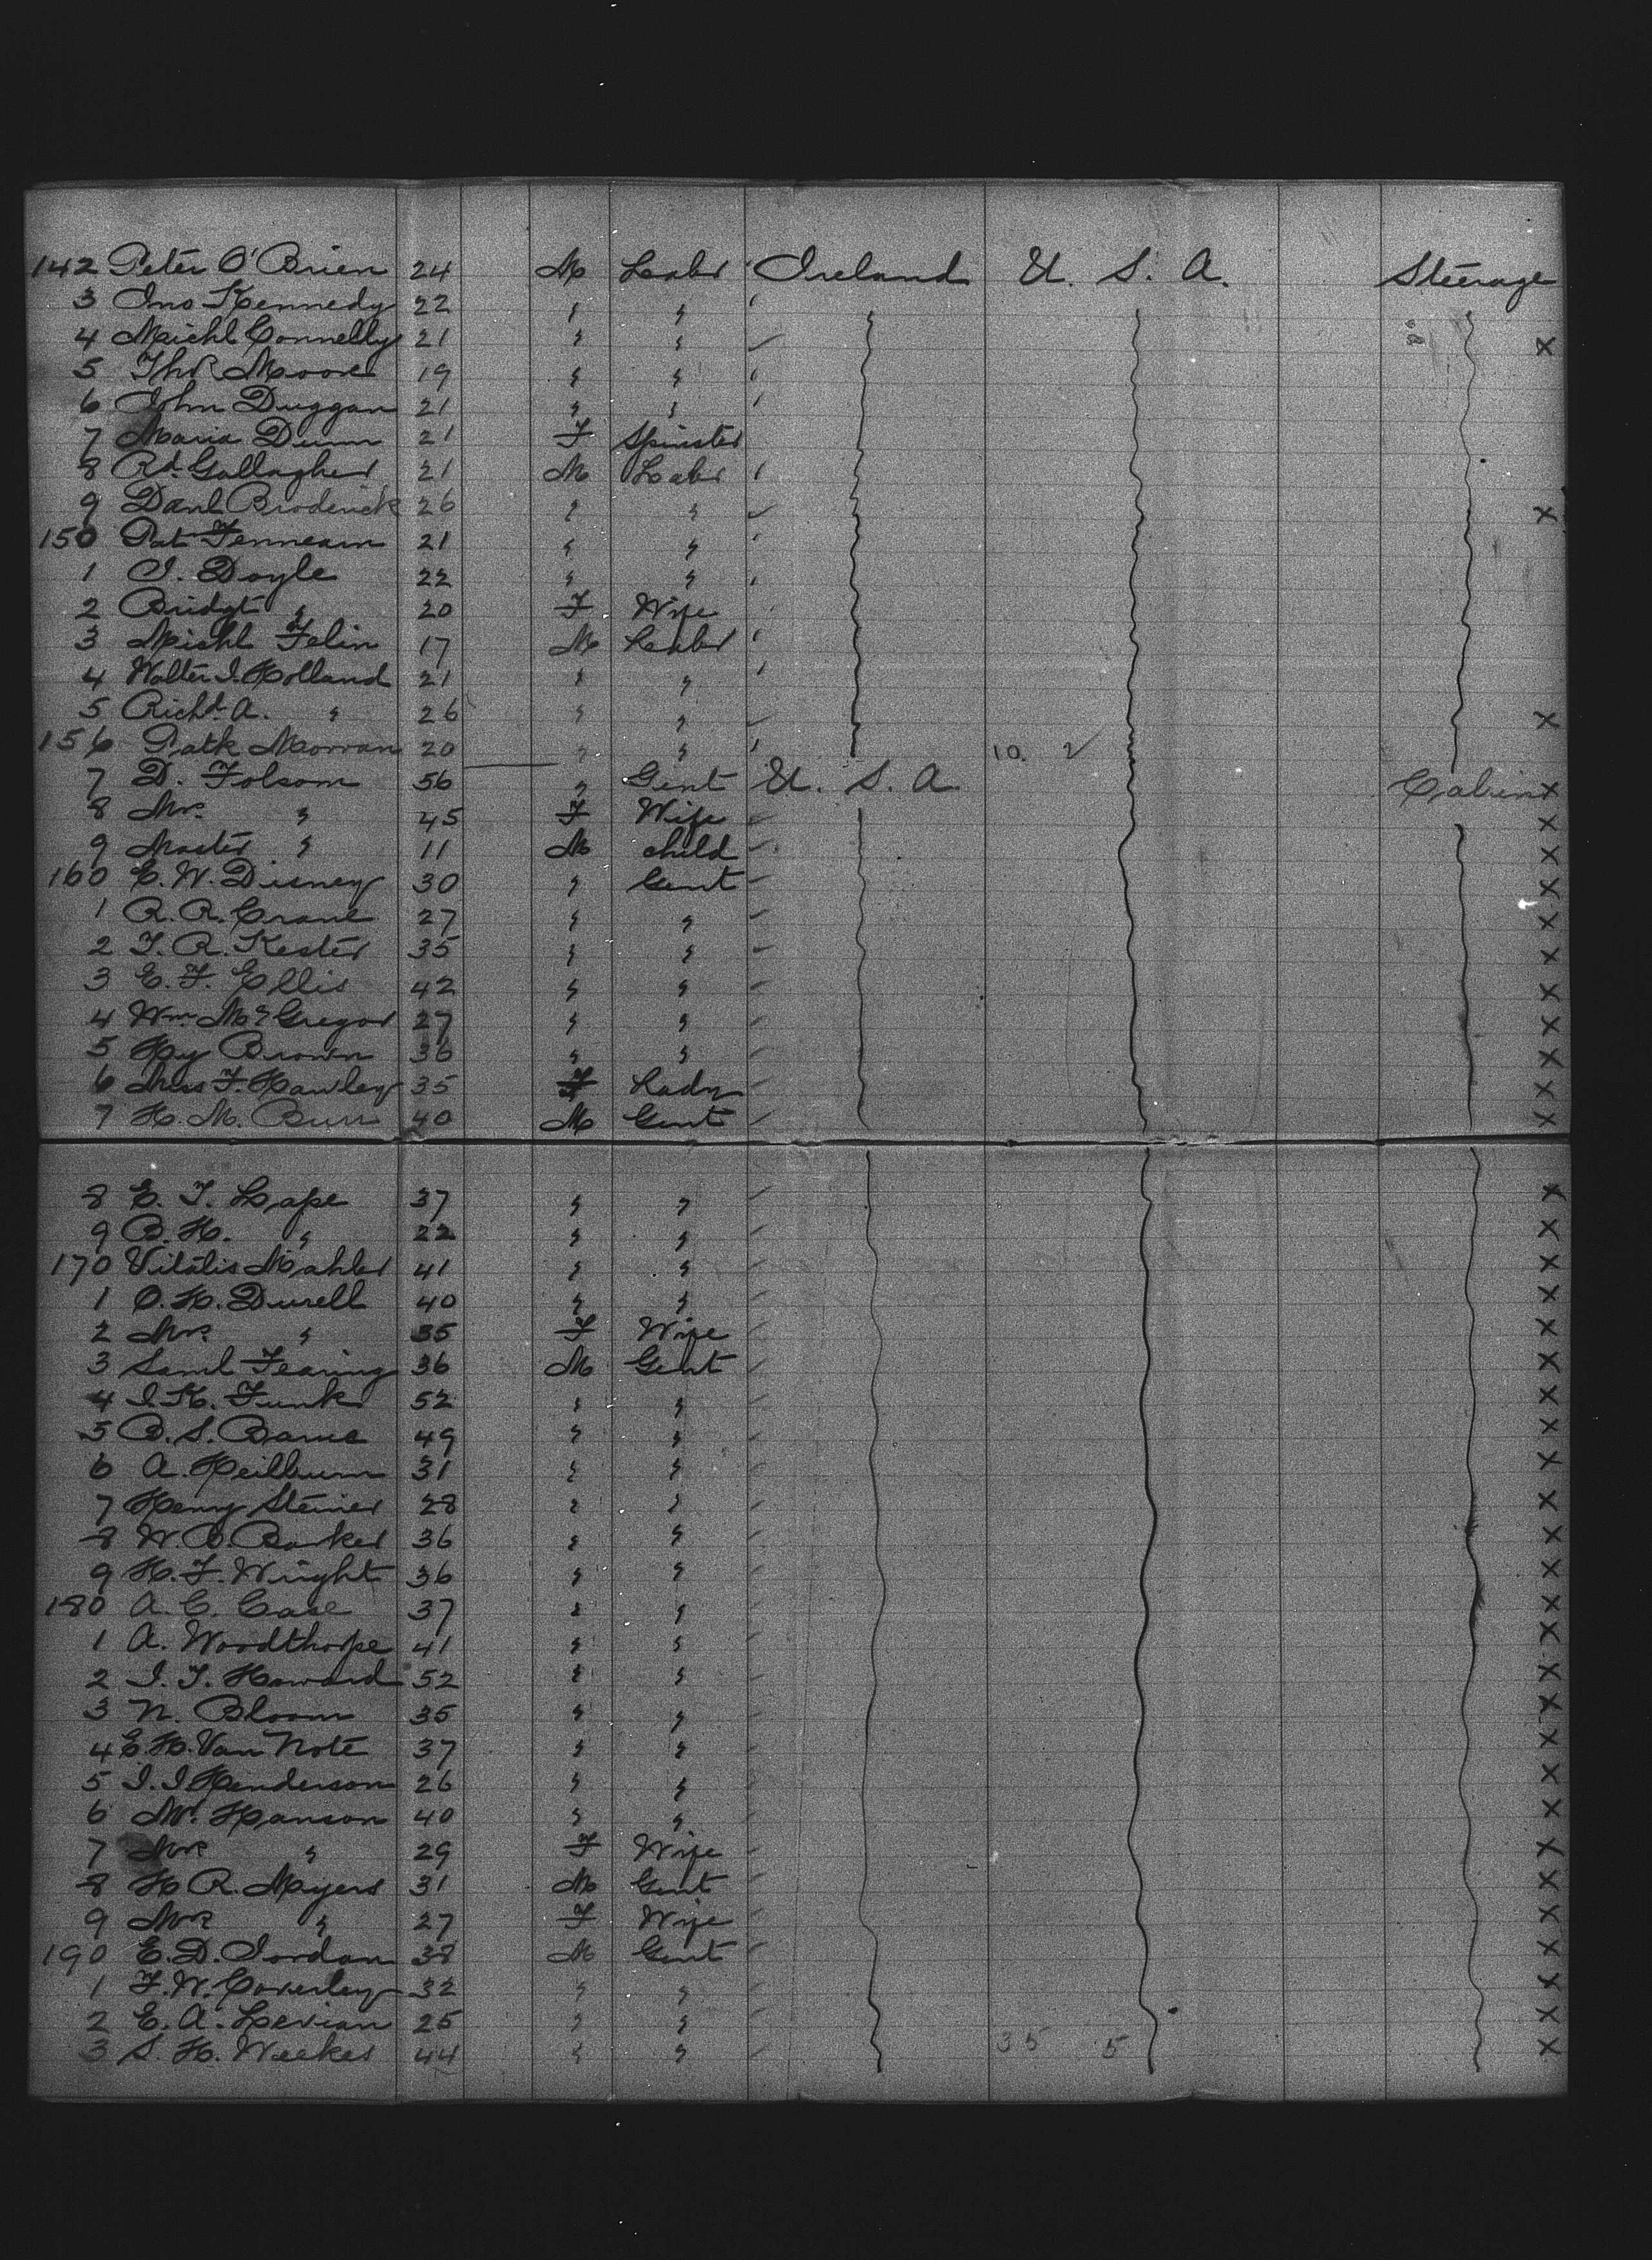 142 Peter O'Brien 24 M Labr Ireland U. S. A. Steerage
3 Jno Kennedy 22 " "
4 Michl Connelly 21 " " x
5 Thos Moore 19 " "
6 John Duggan 21 " "
7 Maria Dunn 21 F Spinster
8 Rd. Gallagher 21 M Labr
9 Danl Broderick 26 " " x
150 Pat 21 " "
1 J. Doyle 22 " "
2 Bridgt " 20 F Wife
3 Michl 17 M Labr
4 Walter J. Holland 21 " "
5 Richd. A. " 26 " " x
156 Patk 20 " " 10. 2
7 D. Folsom 56 " Gent U. S. A. Cabin x
8 Mrs. " 45 F Wife x
9 Master " 11 M child x
160 E. W. Disney 30 " Gent x
1 R. R. Crane 27 " " x
2 T. R. Kester 35 " " x
3 E. F. Ellis 42 " " x
4 Wm. McGregor 27 " " x
5 Hy Brown 36 " " x
6 Miss F. Hawley 35 F Lady x
7 H. M. Burr 40 M Gent x
8 E. T. Lape 37 " " x
9 B. H. " 22 " " x
170 Vitalis Mahler 41 " " x
1 O. H. Durell 40 " " x
2 Mrs " 35 F Wife x
3 Saml Fearing 36 M Gent x
4 I. K. Funk 52 " " x
5 B. S. 49 " " x
6 A. Heilbrunn 31 " " x
7 Henry Steiner 28 " " x
8 W. B. Barker 36 " " x
9 H. F. Wright 36 " " x
180 A. C. Case 37 " " x
1 A. Woodthorpe 41 " " x
2 J. T. Howard 52 " " x
3 N. Bloom 35 " " x
4 E. H. Van Note 37 " " x
5 J. J. Henderson 26 " " x
6 Mr. Hanson 40 " " x
7 Mrs " 29 F Wife x
8 H R. Myers 31 M Gent x
9 Mrs " 27 F Wife x
190 E. D. Jordan 38 M Gent x
1 F. W. Coverley 32 " " x
2 E. A. 25 " " x
3 S. H. Weekes 44 " " 35 5 x